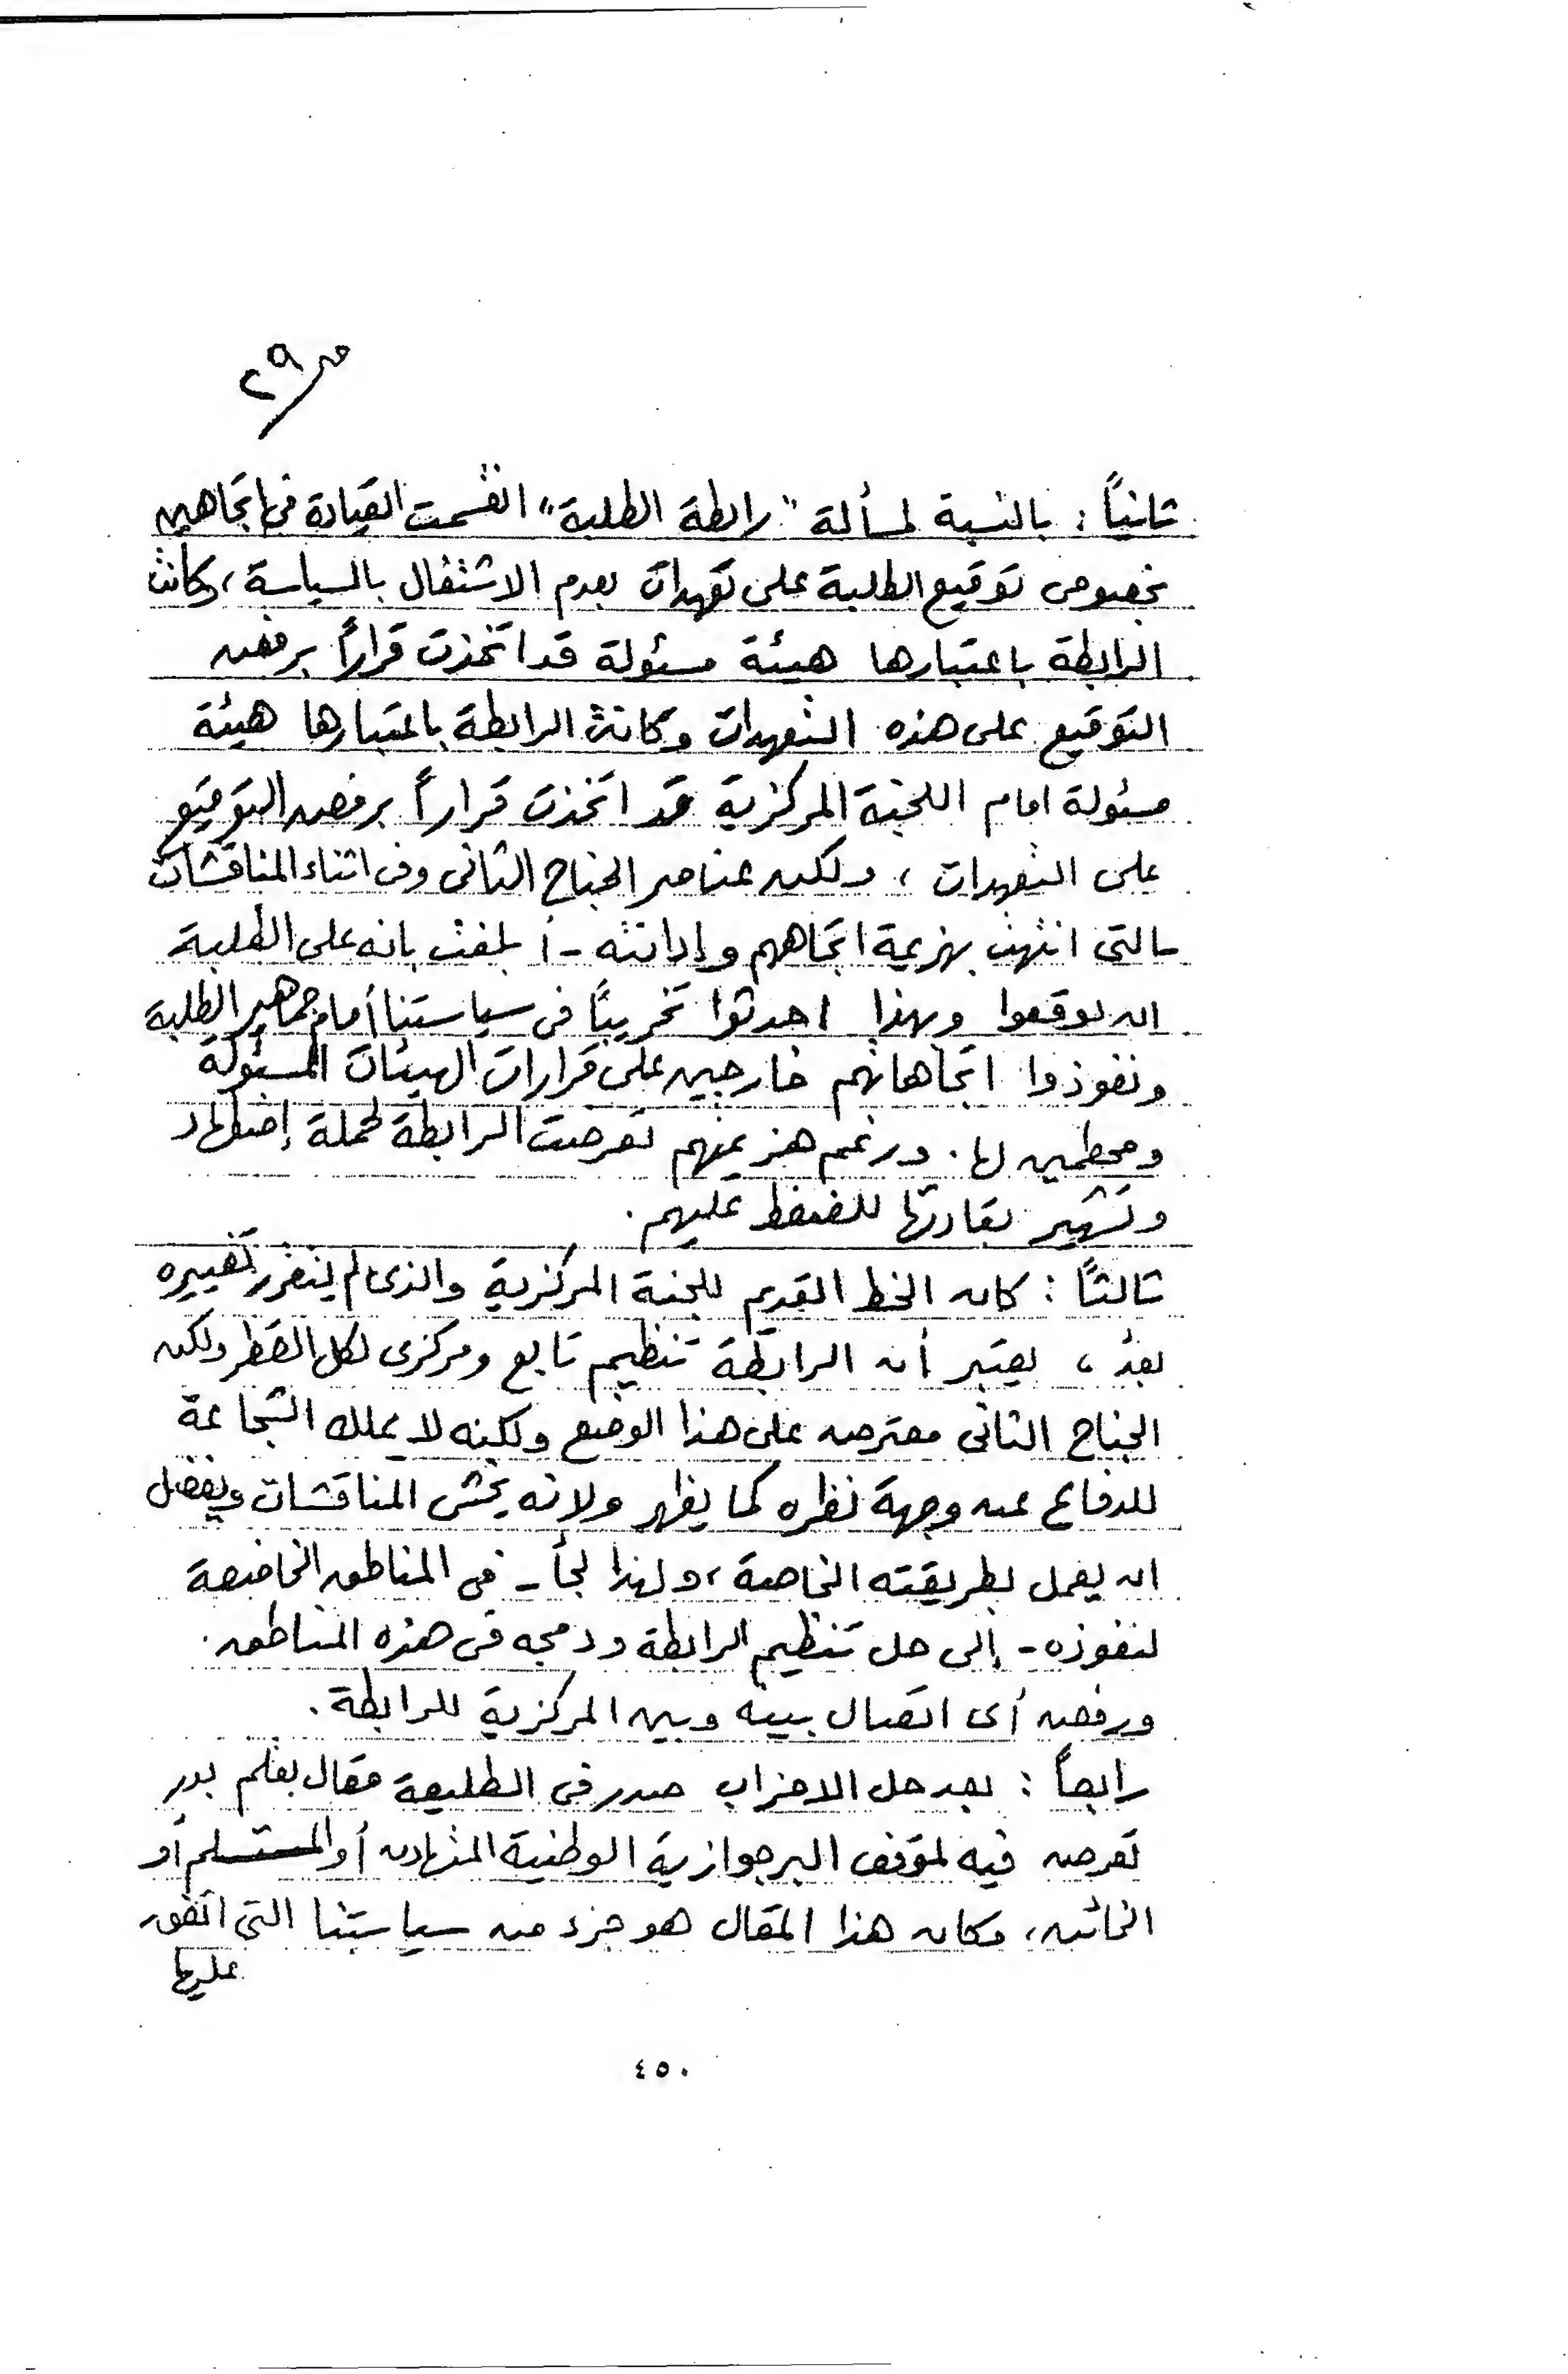 ص ٢٩
ثانياً : بالنسبة لمسألة "رابطة الطلبة" انقسمت القيادة في اتجاهين
بخصوص توقيع الطلبة على تعهدات بعدم الاشتغال بالسياسة، وكانت
الرابطة باعتبارها هيئة مسئولة قد اتخذت قراراً برفض
التوقيع على هذه التعهدات وكانت الرابطة باعتبارها هيئة
مسئولة امام اللجنة المركزية قد اتخذت قراراً برفض التوقيع
على التعهدات ، ولكن عناصر الجناح الثانى وفى اثناء المناقشات
- التى انتهت بهزيمة اتجاههم وإدانته - أبلغت بانه على الطلبة
ان يوقعوا وبهذا احدثوا تخريباً فى سياستنا أمام جماهير الطلبة
ونفوذوا اتجاهاتهم خارجين على قرارات الهيئات المسئولة
ومحطمين لها . ورغم هزيمتهم تعرضت الرابطة لحملة إضطهاد
وتشهير بقادتها للضغط عليهم .
ثالثاً : كان الخط القديم للجنة المركزية والذى لم يتقرر تغييره
بعد ، يعتبر أن الرابطة تنظيم تابع ومركزى لكل القطر ولكن
الجناح الثانى معترض على هذا الوضع ولكنه لا يملك الشجاعة
للدفاع عن وجهة نظره كما يظهر ولانه يخشى المناقشات ويفضل
ان يعمل بطريقته الخاصة ، ولهذا لجأ - فى المناطق الخاضعة
لنفوذه - إلى حل تنظيم الرابطة ودمجه فى هذه المناطق .
ورفض أى اتصال بينه وبين المركزية للرابطة .
رابعاً : بعد حل الاحزاب صدر فى الطليعة مقال بقلم بدر
تعرض فيه لموقف البرجوازية الوطنية المتهادن أو المستسلم أو
الخائن ، وكان هذا المقال هو جزء من سياستنا التى اتفق
عليها
٤٥٠